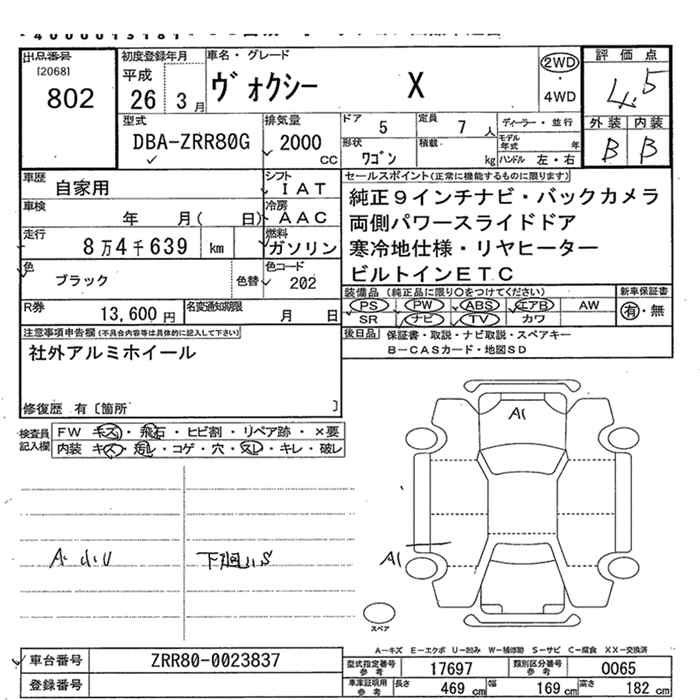 出品番号
[2068]
802
初度登録年月
平成
26年 3月
車名・グレード
ヴォクシー X
2WD
・
4WD
評価点
4.5
外装 内装
B B
型式
DBA-ZRR80G
排気量
2000
CC
ドア 5
定員 7人
ディーラー・並行
形状
ワゴン
積載 kg
モデル年式 年
ハンドル 左・右
車歴
自家用
シフト
IAT
車検 年 月( 日)
冷房
AAC
走行
8万4千639 km
燃料
ガソリン
色
ブラック
色替
色コード
202
R券
13,600円
名変通知期限
月 日
セールスポイント(正常に機能するものに限ります)
純正9インチナビ・バックカメラ
両側パワースライドドア
寒冷地仕様・リヤヒーター
ビルトインETC
装備品(純正品に限り○をつけてください)
PS PW ABS エアB AW
SR ナビ TV カワ
新車保証書
有・無
後日品 保証書・取説・ナビ取説・スペアキー
B-CASカード・地図SD
注意事項申告欄(不具合内容等は具体的に記入して下さい)
社外アルミホイール
修復歴 有〔箇所 〕
検査員
記入欄
FW キズ・飛石・ヒビ割・リペア跡・×要
内装 キズ・汚レ・コゲ・穴・スレ・キレ・破レ
A1
A1
スペア
A-キズ E-エクボ U-凹み W-補修跡 S-サビ C-腐食 XX-交換済
車台番号 ZRR80-0023837
登録番号
型式指定番号
参考
17697
類別区分番号
参考
0065
車庫証明用
参考
長さ 469 cm 幅 169 cm 高さ 182 cm